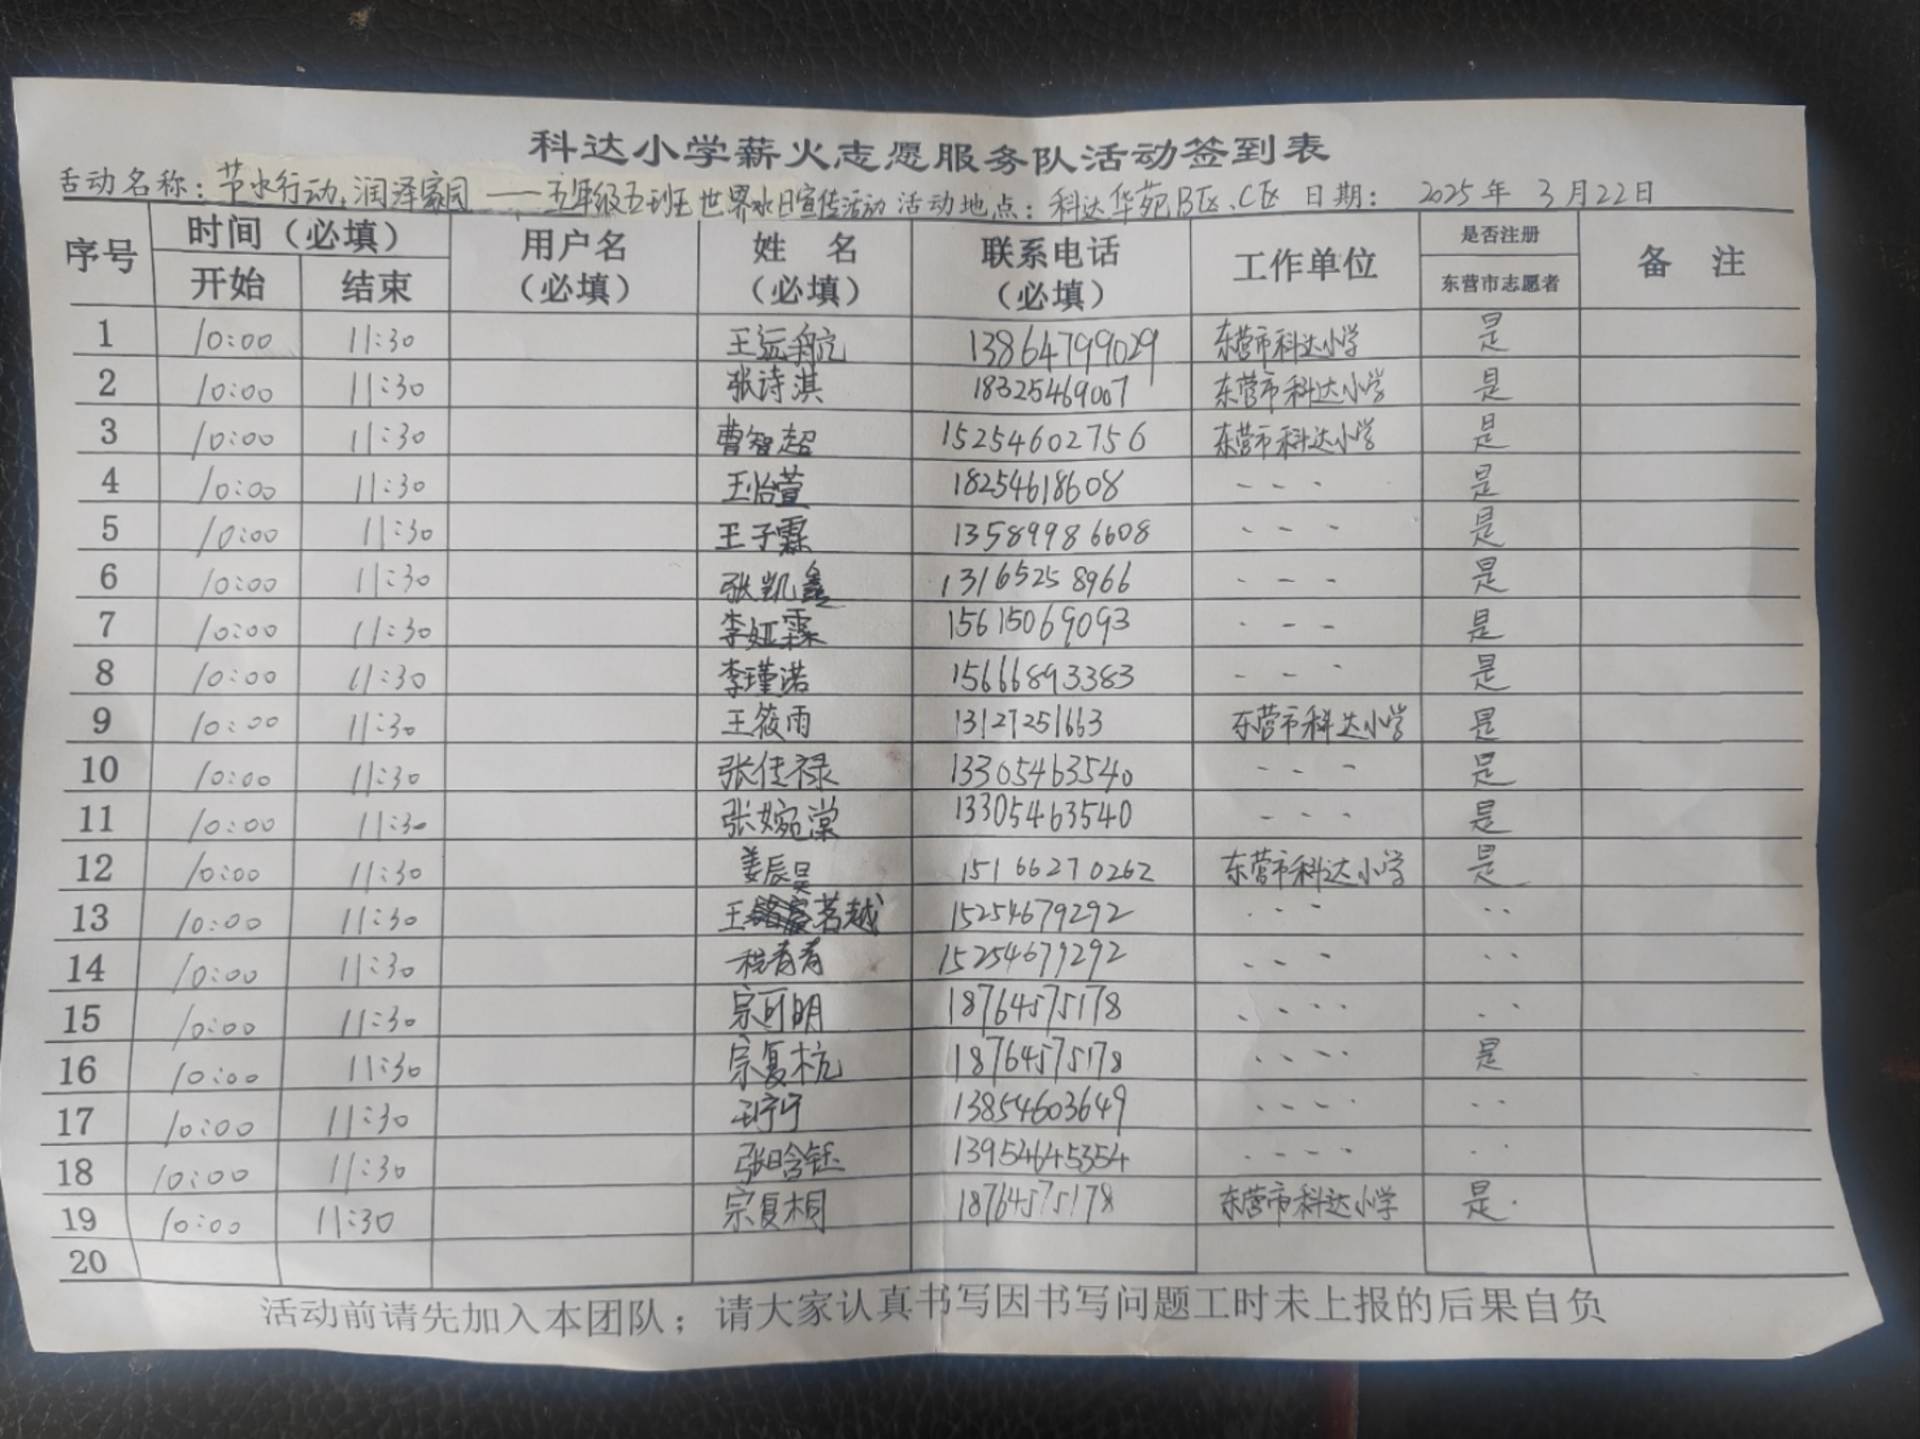 科达小学薪火志愿服务队活动签到表
活动名称：节水行动，润泽家园——五年级五班世界水日宣传活动 活动地点：科达华苑B区、C区 日期： 2025年 3月22日
序号 时间（必填） 用户名（必填） 姓 名（必填） 联系电话（必填） 工作单位 是否注册 备 注
开始 结束 东营市志愿者
1 10:00 11:30 王运航 13864799029 东营市科达小学 是
2 10:00 11:30 张诗淇 18325469007 东营市科达小学 是
3 10:00 11:30 曹智超 15254602756 东营市科达小学 是
4 10:00 11:30 王怡萱 18254618608 - - - 是
5 10:00 11:30 王子霖 13589986608 - - - 是
6 10:00 11:30 张凯鑫 13165258966 - - - 是
7 10:00 11:30 李娅霖 15615069093 - - - 是
8 10:00 11:30 李瑾诺 15666893383 - - - 是
9 10:00 11:30 王筱雨 13127251663 东营市科达小学 是
10 10:00 11:30 张佳禄 13305463540 - - - 是
11 10:00 11:30 张婉棠 13305463540 - - - 是
12 10:00 11:30 姜辰昊 15166270262 东营市科达小学 是
13 10:00 11:30 王茗越 15254679292 - - - - -
14 10:00 11:30 程青青 15254679292 - - - - -
15 10:00 11:30 宗可明 18764575178 - - - - - -
16 10:00 11:30 宗复杭 18764575178 - - - - 是
17 10:00 11:30 王宁宁 13854603649 - - - - - -
18 10:00 11:30 张晗钰 13954645354 - - - - - -
19 10:00 11:30 宗复桐 18764575178 东营市科达小学 是.
20
活动前请先加入本团队；请大家认真书写因书写问题工时未上报的后果自负